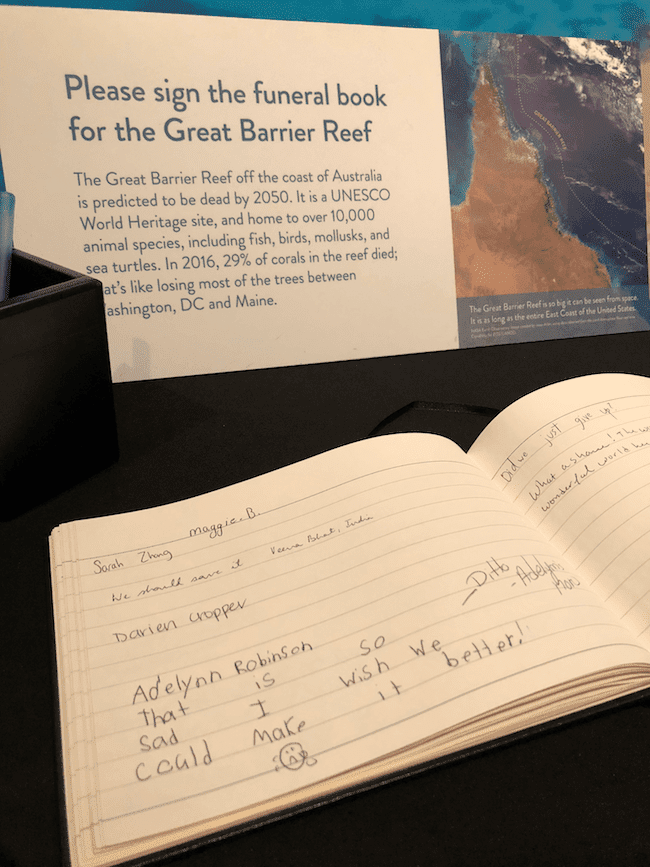 Please sign the funeral book
for the Great Barrier Reef
The Great Barrier Reef off the coast of Australia
is predicted to be dead by 2050. It is a UNESCO
World Heritage site, and home to over 10,000
animal species, including fish, birds, mollusks, and
sea turtles. In 2016, 29% of corals in the reef died;
at's like losing most of the trees between
ashington, DC and Maine.
GREAT BARRIER REEF
The Great Barrier Reef is so big it can be seen from space.
It is as long as the entire East Coast of the United States.
maggie. B.
Sarah Zhang
We should save it Veena Bhat, India
Darien Cropper
Adelynn Robinson
that is so
sad I wish we
could make it better!
Ditto
- Adelynn's
Did we just give up!
What a shame! The
wonderful world